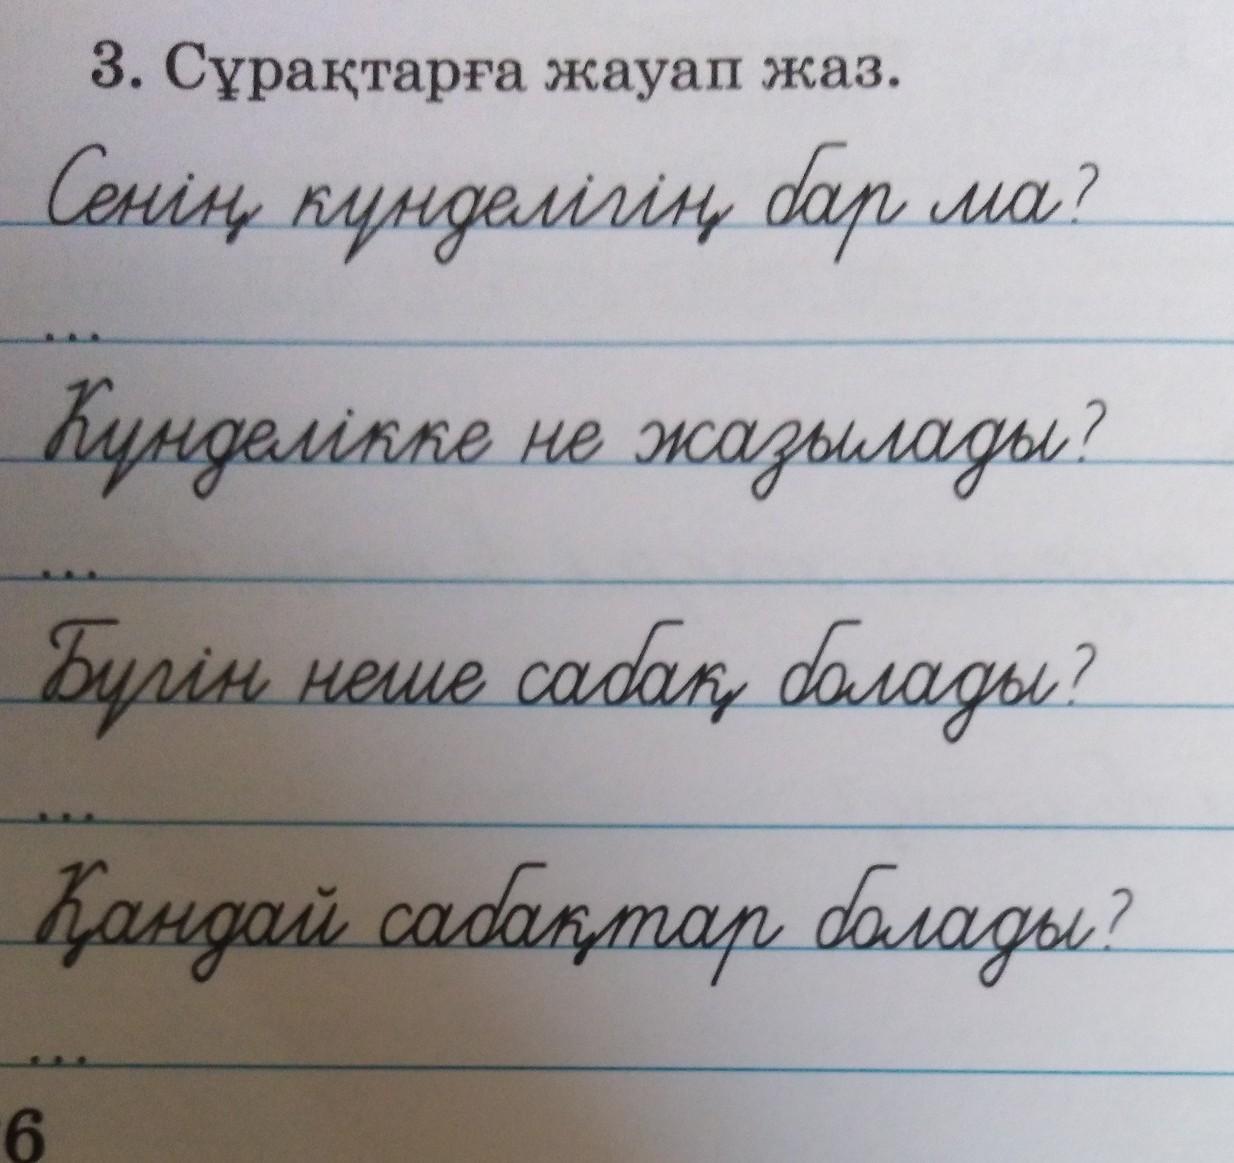 3. Сұрақтарға жауап жаз.
Сенің күнделігің бар ма?
...
Күнделікке не жазылады?
...
Бүгін неше сабақ болады?
...
Қандай сабақтар болады?
...
6